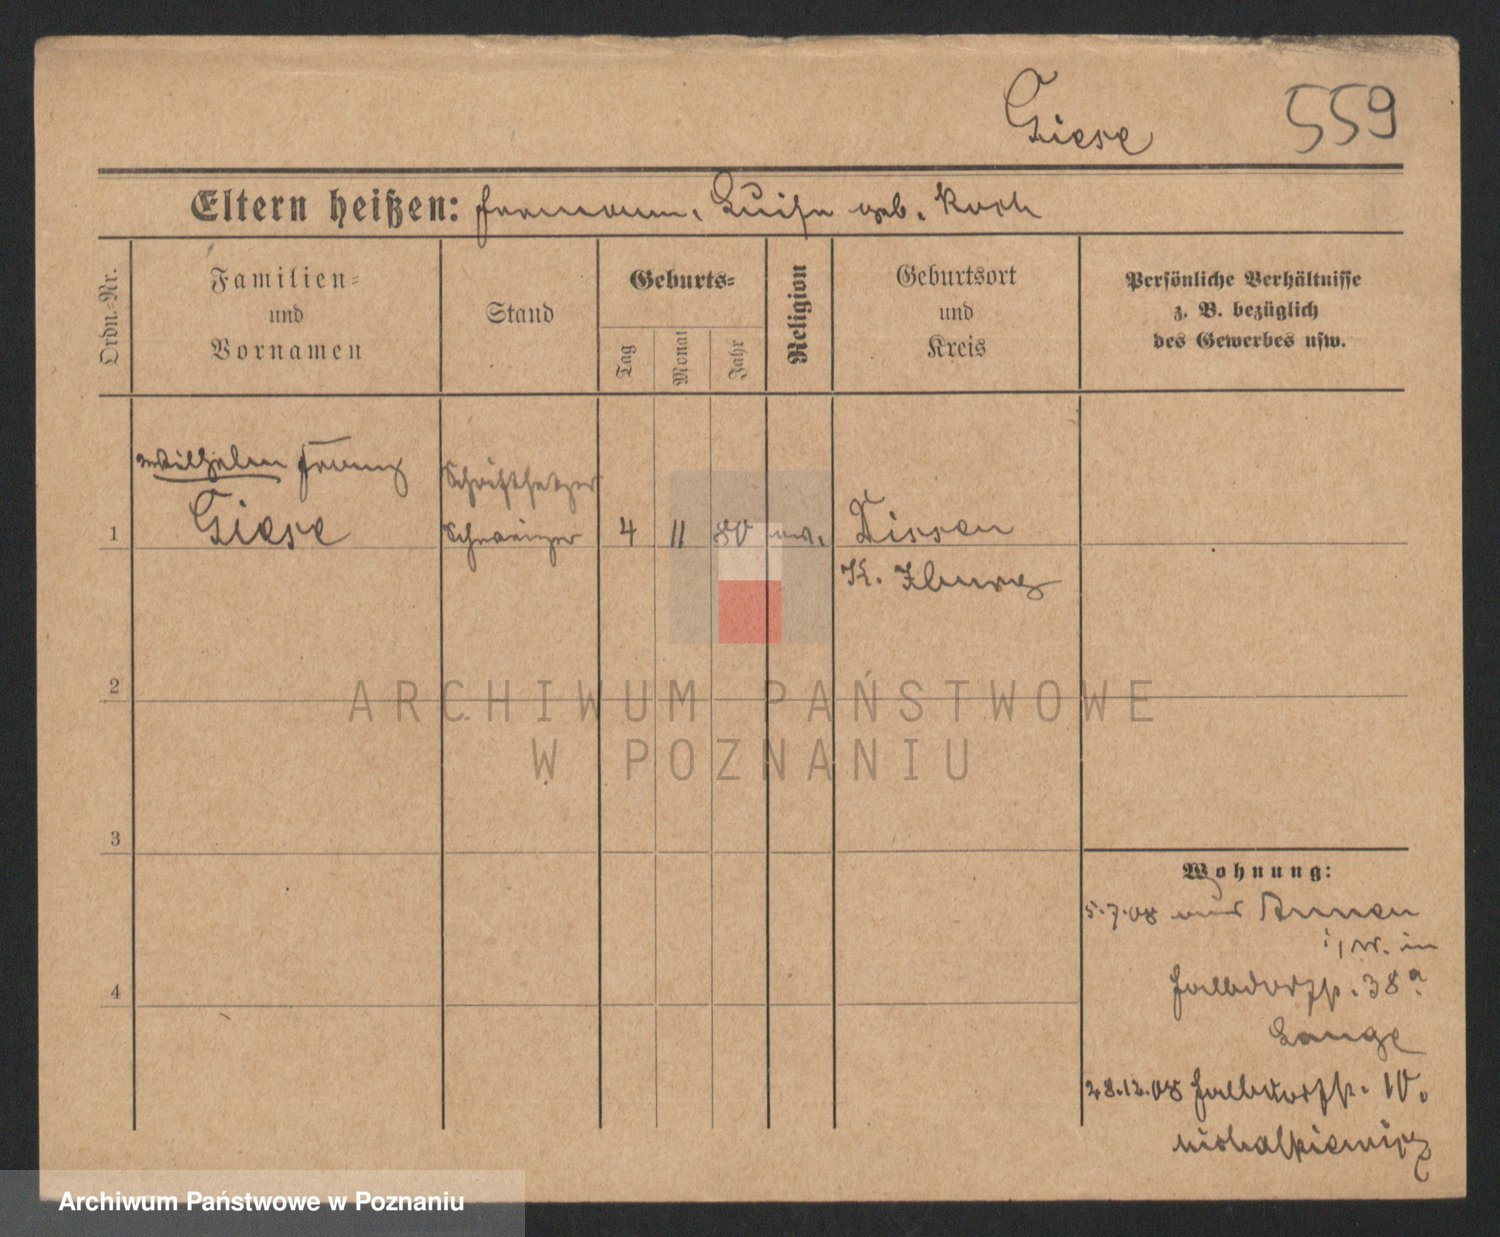 Giese 559
Eltern heißen: Hermann, Luise geb. Koch
Ordn.-Nr.
Familien-
und
Vornamen
Stand
Geburts-
Tag
Monat
Jahr
Religion
Geburtsort
und
Kreis
Persönliche Verhältnisse
z. B. bezüglich
des Gewerbes usw.
Wilhelm Franz
Giese
Schriftsetzer
Schweizer
1 4 11 80 ev.
Dissen
K. Iburg
2
3
4
Wohnung:
5.7.08 aus Annen
i/W. in
Halbdorfstr. 38a
Lange
28.12.08 Halbdorfstr. 10.
ARCHIWUM PAŃSTWOWE
W POZNANIU
Archiwum Państwowe w Poznaniu